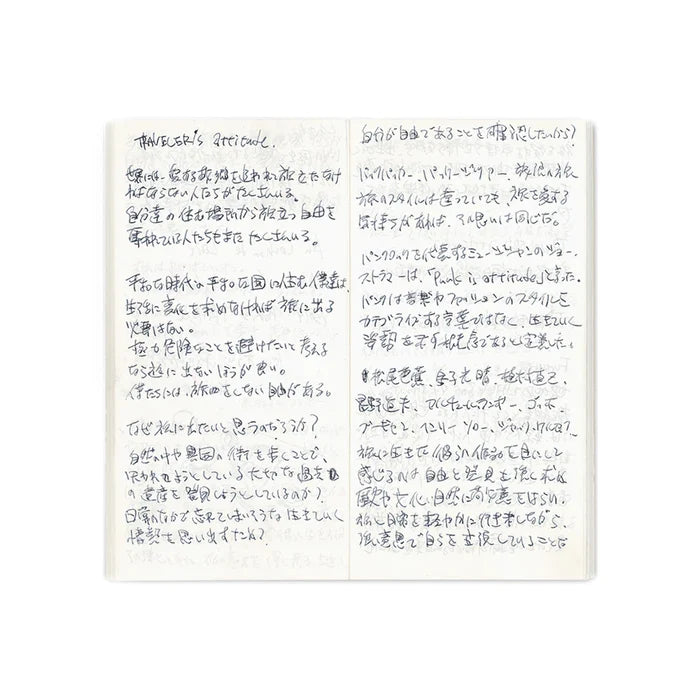 TRAVELER'S attitude.
世界には、愛する故郷を追われ旅立たなけ
ればならない人たちがたくさんいる。
自分達の住む場所から旅立つ自由を
奪われている人たちもまたたくさんいる。
平和な時代の平和な国に住む僕達は、
生活に変化を求めなければ旅に出る
必要はない。
極力危険なことを避けたいと考える
なら旅に出ないほうが良い。
僕たちには、旅をしない自由がある。
なぜ旅に出たいと思うのだろうか?
自然の中や異国の街を歩くことで、
失われようとしている大切な過去
の遺産を発見しようとしているのか?
日常のなかで忘れてしまいそうな生きていく
情熱を思い出すため?
自分が自由であることを確認したいから?
バックパッカー、パッケージツアー、放浪の旅
旅のスタイルは違っていても、旅を愛する
気持ちがあれば、その思いは同じだ。
パンクロックを代表するミュージシャンのジョー・
ストラマーは、「Punk is attitude」と言った。
パンクは音楽やファッションのスタイルを
カテゴライズする言葉ではなく、生きていく
姿勢を示す精神であると定義した。
松尾芭蕉、金子光晴、植村直己、
星野道夫、アルチュール・ランボー、ゴッホ、
ゴーギャン、ヘンリー・ソロー、ジャック・ケルアック、
旅に生きた彼らの作品を目にして
感じるのは自由と発見を強く求め
歴史や文化、自然に敬意をはらい、
旅と日常を軽やかに行き来しながら、
強い意思で自らを表現していることだ